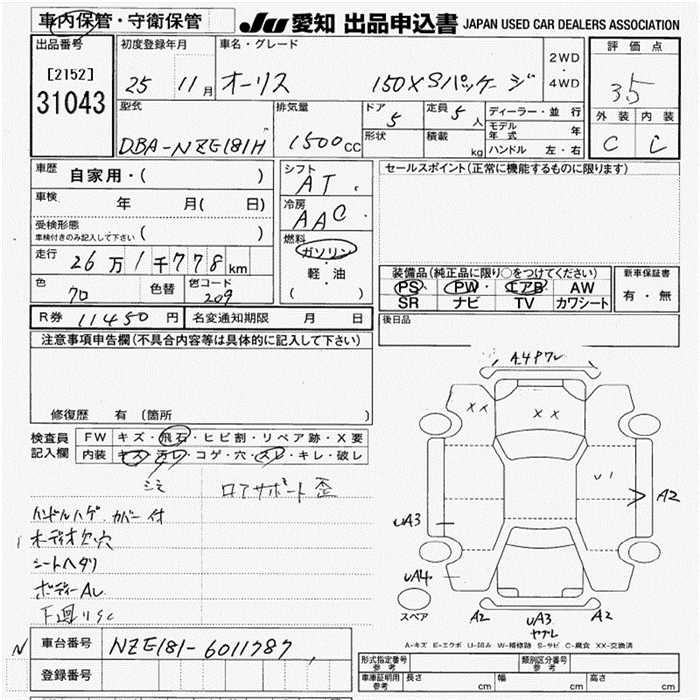 車内保管・守衛保管
JU 愛知 出品申込書 JAPAN USED CAR DEALERS ASSOCIATION
出品番号
[2152]
31043
初度登録年月
25 11月
車名・グレード
オーリス 150X Sパッケージ
2WD
・
4WD
評価点
3.5
外装 内装
C C
型式
DBA-NZE181H
排気量
1500CC
ドア
5
形状
定員 5人
積載 kg
ディーラー・並行
モデル年式 年
ハンドル 左・右
車歴 自家用・( )
車検 年 月( 日)
受検形態
車検付きのみ記入して下さい ( )
走行 26万1千778km
色 70 色替 色コード 209
シフト
AT
冷房
AAC
燃料
ガソリン
・
軽・油
( )
セールスポイント(正常に機能するものに限ります)
装備品(純正品に限り○をつけてください)
PS PW エアB AW
SR ナビ TV カワシート
新車保証書
有・無
R券 11450円 名変通知期限 月 日
後日品
注意事項申告欄(不具合内容等は具体的に記入して下さい)
修復歴 有 (箇所 )
検査員
記入欄
FW キズ・飛石・ヒビ割・リペア跡・X要
内装 キズ・汚レ・コゲ・穴・スレ・キレ・破レ
ロアサポート歪
ハンドルハゲ カバー付
シートヘタリ
XX
XX
U1
A2
UA3
UA4
スペア
A2
UA3
ヤブレ
A2
A-キズ E-エクボ U-凹み W-補修跡 S-サビ C-腐食 XX-交換済
N
車台番号 NZE181-6011787
登録番号
形式指定番号 参考 類別区分番号 参考
車庫証明用 参考 長さ cm 幅 cm 高さ cm